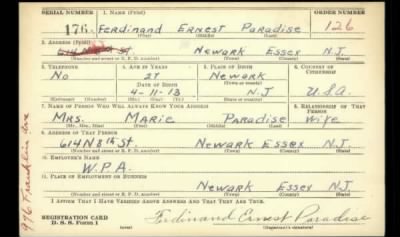 SERIAL NUMBER 1. NAME (Print) ORDER NUMBER
176 Ferdinand Ernest Paradise 126
(First) (Middle) (Last)
2. ADDRESS (Print)
Newark Essex N.J.
(Number and street or R. F. D. number) (Town) (County) (State)
3. TELEPHONE 4. AGE IN YEARS 5. PLACE OF BIRTH 6. COUNTRY OF CITIZENSHIP
No 27 Newark
DATE OF BIRTH (Town or county)
4-11-13 N.J U.S.A
(Mo.) (Day) (Yr.) (State or country)
7. NAME OF PERSON WHO WILL ALWAYS KNOW YOUR ADDRESS 8. RELATIONSHIP OF THAT PERSON
Mrs. Marie Paradise Wife
(Mr., Mrs., Miss) (First) (Middle) (Last)
9. ADDRESS OF THAT PERSON
614 N 8th St. Newark Essex N.J.
(Number and street or R. F. D. number) (Town) (County) (State)
10. EMPLOYER'S NAME
W.P.A.
11. PLACE OF EMPLOYMENT OR BUSINESS
Newark Essex N.J.
(Number and street or R. F. D. number) (Town) (County) (State)
I AFFIRM THAT I HAVE VERIFIED ABOVE ANSWERS AND THAT THEY ARE TRUE.
REGISTRATION CARD
D. S. S. Form 1 Ferdinand Ernest Paradise
(Registrant's signature)
976 Franklin ave